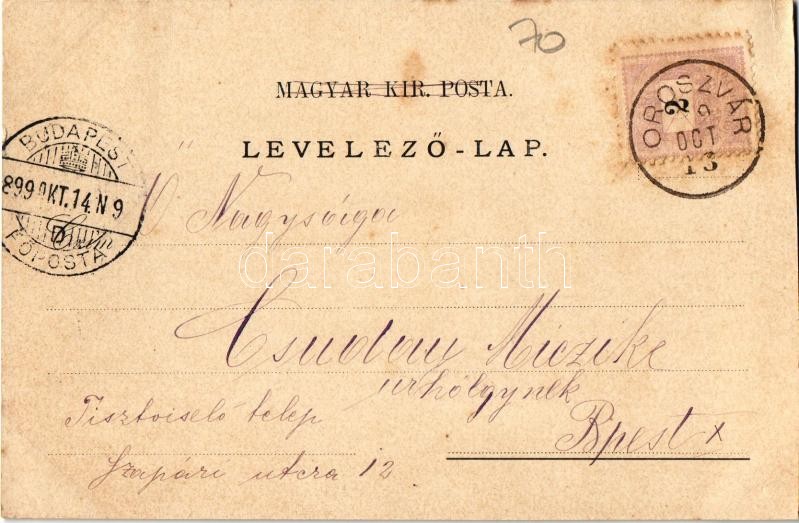 70
MAGYAR KIR. POSTA.
LEVELEZŐ-LAP.
OROSZVÁR
OCT
13
2
BUDAPEST
899 OKT.14.N9
D
FŐPOSTA
Ő Nagysága
darabanth
Csuday Miczike
urhölgynek
Tisztviselő telep
Bpest
Szapári utcza 12